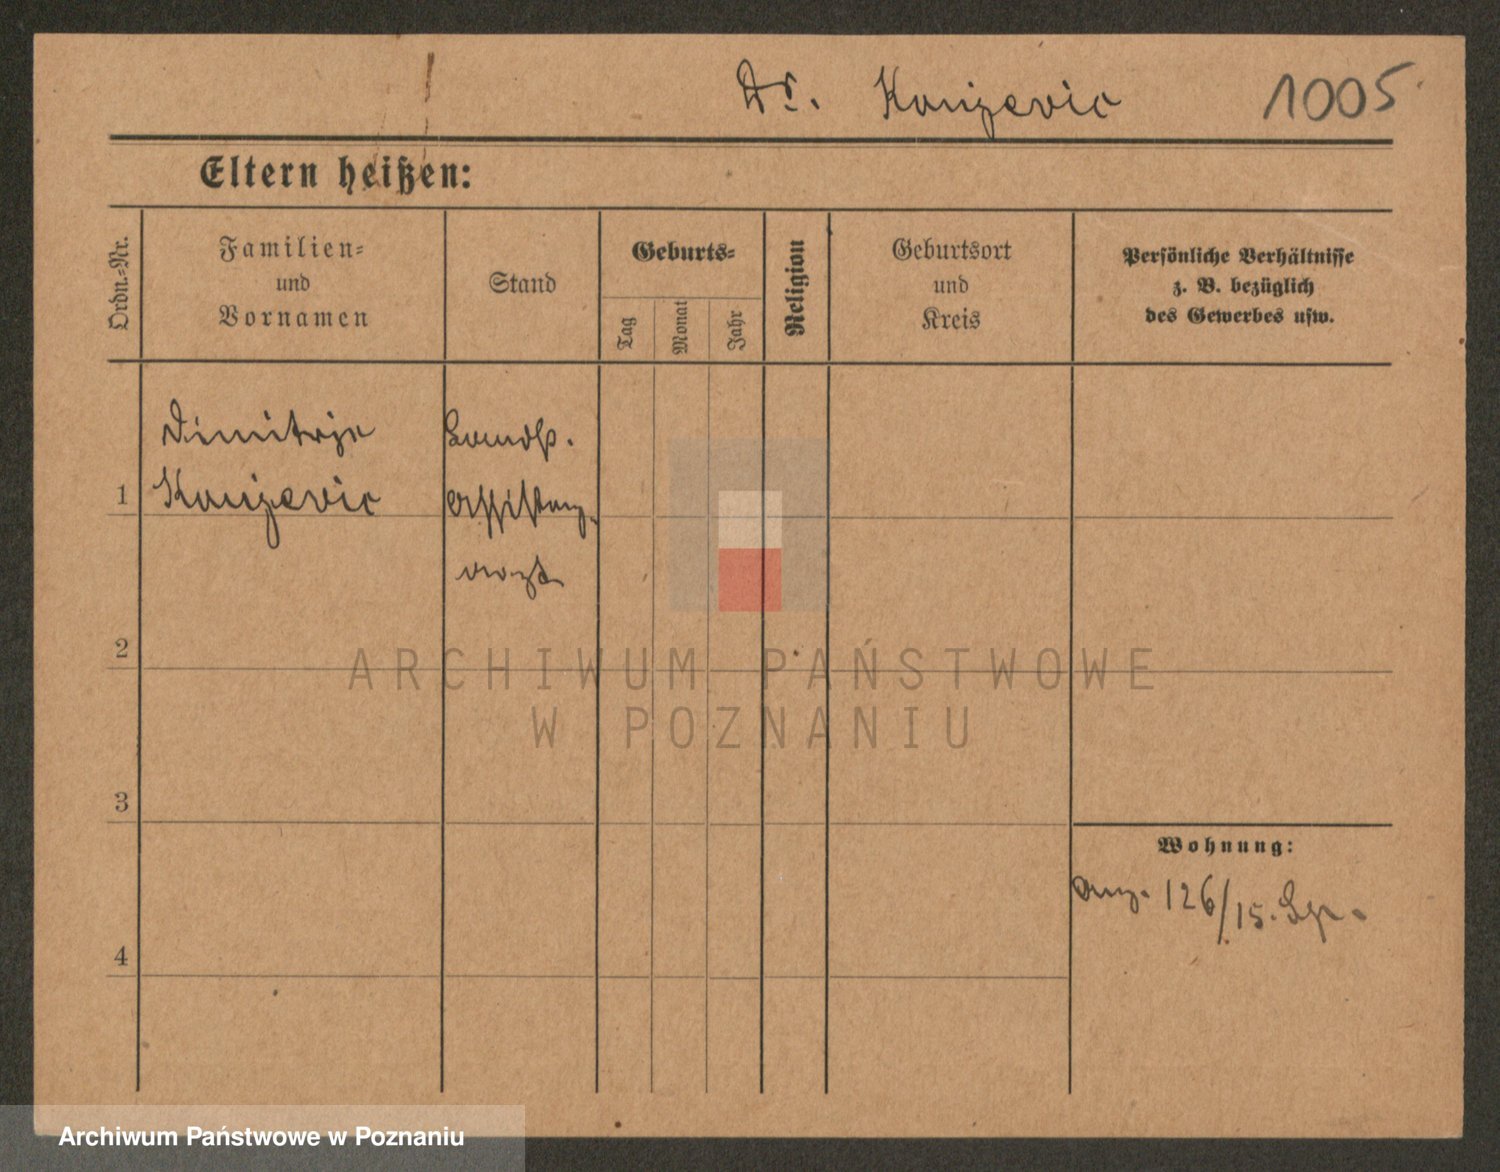 Dr. Konjevic 1005
Eltern heißen:
Ordn.=Nr.
Familien=
und
Vornamen
Stand
Geburts=
Tag
Monat
Jahr
Religion
Geburtsort
und
Kreis
Persönliche Verhältnisse
z. B. bezüglich
des Gewerbes usw.
Dimitrje
1 Konjevic
Assistenz-
arzt
2
3
4
Wohnung:
126/15.
ARCHIWUM PAŃSTWOWE
W POZNANIU
Archiwum Państwowe w Poznaniu